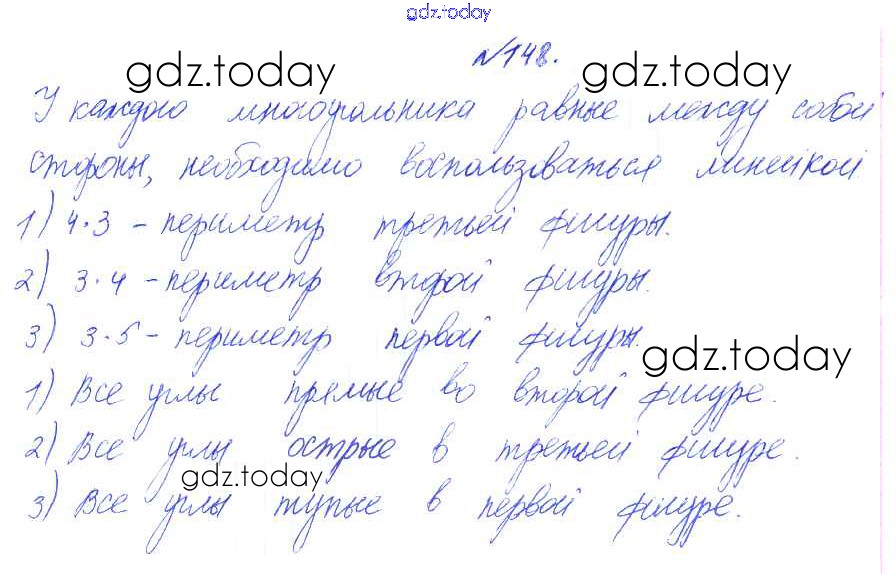 gdz.today
№148.
gdz.today gdz.today
У каждого многоугольника равные между собой
стороны, необходимо воспользоваться линейкой
1) 4·3 - периметр третьей фигуры.
2) 3·4 - периметр второй фигуры.
3) 3·5 - периметр первой фигуры.
gdz.today
1) Все углы прямые во второй фигуре.
2) Все углы острые в третьей фигуре.
gdz.today
3) Все углы тупые в первой фигуре.